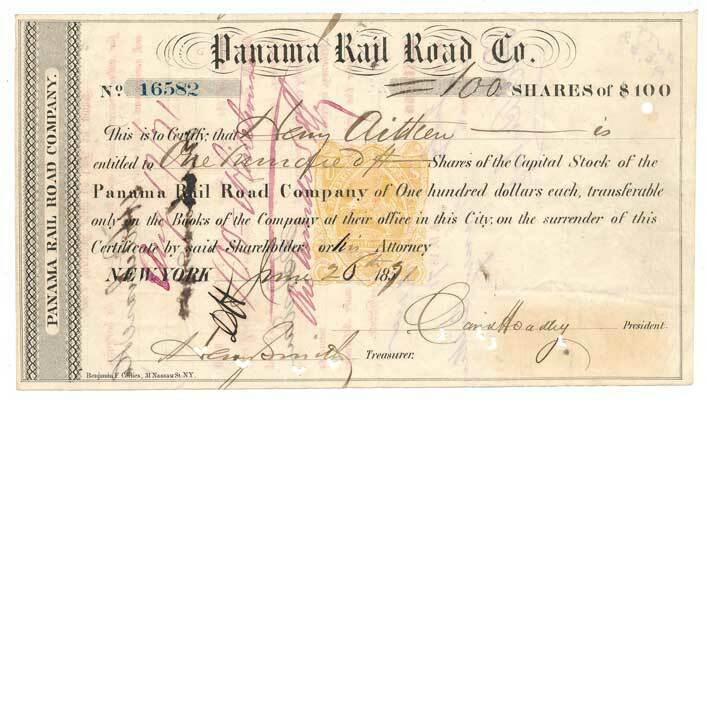 Panama Rail Road Co.
No 16582 100 SHARES of $100
This is to Certify, that Henry Aitken is
entitled to One hundred Shares of the Capital Stock of the
Panama Rail Road Company of One hundred dollars each, transferable
only on the Books of the Company at their office in this City, on the surrender of this
Certificate by said Shareholder or his Attorney
NEW YORK June 26th 1871
David Hoadley President.
Henry Smith Treasurer.
31 Nassau St. N.Y.
PANAMA RAIL ROAD COMPANY.